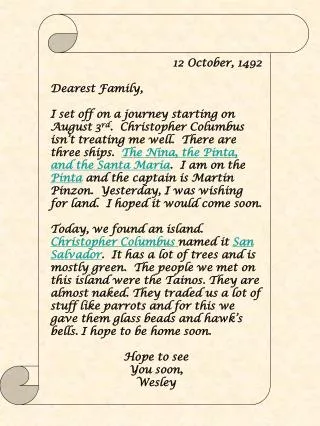 12 October, 1492
Dearest Family,
I set off on a journey starting on
August 3rd. Christopher Columbus
isn't treating me well. There are
three ships. The Nina, the Pinta,
and the Santa Maria. I am on the
Pinta and the captain is Martin
Pinzon. Yesterday, I was wishing
for land. I hoped it would come soon.
Today, we found an island.
Christopher Columbus named it San
Salvador. It has a lot of trees and is
mostly green. The people we met on
this island were the Tainos. They are
almost naked. They traded us a lot of
stuff like parrots and for this we
gave them glass beads and hawk's
bells. I hope to be home soon.
Hope to see
You soon,
Wesley